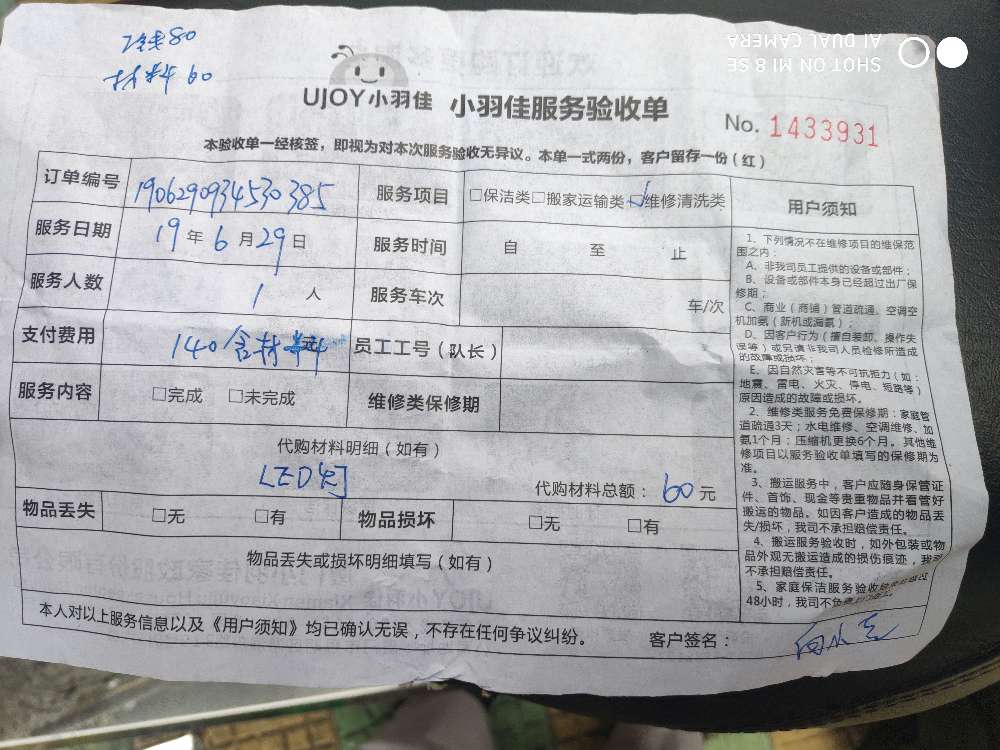 工费80
材料60
SHOT ON MI 8 SE
AI DUAL CAMERA
UJOY小羽佳 小羽佳服务验收单
No. 1433931
本验收单一经核签，即视为对本次服务验收无异议。本单一式两份，客户留存一份（红）
订单编号 190629093453 0385 服务项目 □保洁类□搬家运输类□维修清洗类
服务日期 19年6月29日 服务时间 自 至 止
服务人数 1 人 服务车次 车/次
支付费用 140含材料 员工工号（队长）
服务内容 □完成 □未完成 维修类保修期
代购材料明细（如有）
LED灯 代购材料总额：60元
物品丢失 □无 □有 物品损坏 □无 □有
物品丢失或损坏明细填写（如有）
本人对以上服务信息以及《用户须知》均已确认无误，不存在任何争议纠纷。 客户签名：
用户须知
1、下列情况不在维修项目的维保范
围之内：
A、非我司员工提供的设备或部件；
B、设备或部件本身已经超过出厂保
修期；
C、商业（商铺）管道疏通、空调空
机加氨（新机或漏氨）；
D、因客户行为（擅自装卸、操作失
误等）或另请非我司人员检修所造成
的故障或损坏；
E、因自然灾害等不可抗拒力（如：
地震、雷电、火灾、停电、短路等）
原因造成的故障或损坏。
2、维修类服务免费保修期：家庭管
道疏通3天；水电维修、空调维修、加
氨1个月；压缩机更换6个月。其他维
修项目以服务验收单填写的保修期为
准。
3、搬运服务中，客户应随身保管证
件、首饰、现金等贵重物品并看管好
搬运的物品。如因客户造成的物品丢
失/损坏，我司不承担赔偿责任。
4、搬运服务验收时，如外包装或物
品外观无搬运造成的损伤痕迹，我司
不承担赔偿责任。
5、家庭保洁服务验收
48小时，我司不负